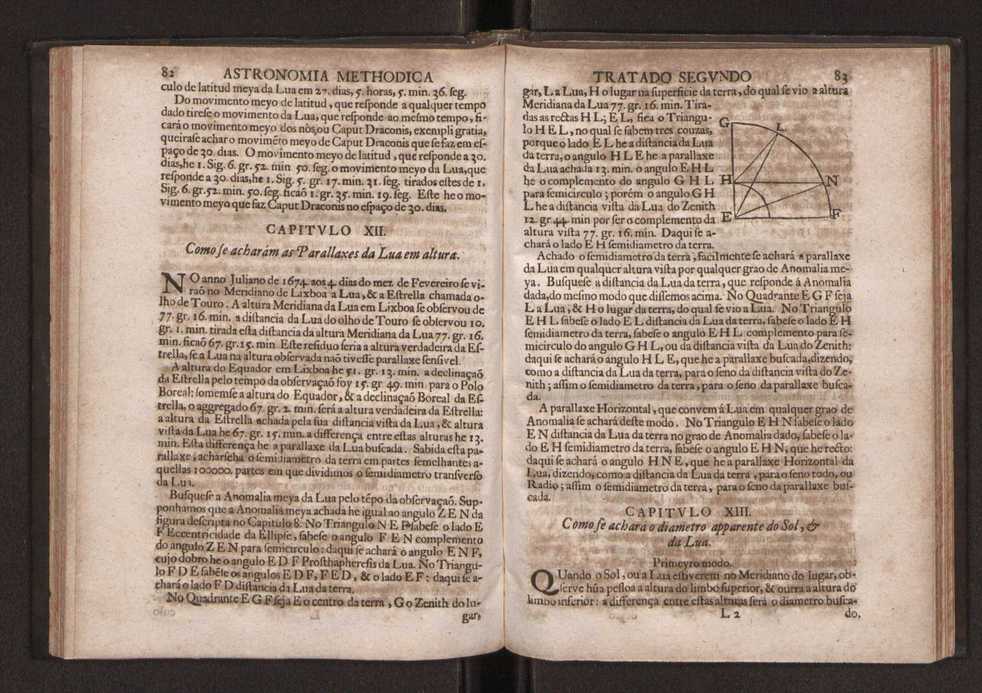 82 ASTRONOMIA METHODICA
culo de latitud meya da Lua em 27. dias, 5. horas, 5. min. 36. seg.
Do movimento meyo de latitud, que responde a qualquer tempo
dado tirese o movimento da Lua, que responde ao mesmo tempo, fi-
cará o movimento meyo dos nòs, ou Caput Draconis, exempli gratia,
queirase achar o movimẽto meyo de Caput Draconis que se faz em es-
paço de 30. dias. O movimento meyo de latitud, que responde a 30.
dias, he 1. Sig. 6. gr. 52. min 50. seg. o movimento meyo da Lua, que
responde a 30. dias, he 1. Sig. 5. gr. 17. min. 31. seg. tirados estes de 1.
Sig. 6. gr. 52. min. 50. seg. ficaõ 1. gr. 35. min. 19. seg. Este he o mo-
vimento meyo que faz Caput Draconis no espaço de 30. dias.
CAPITVLO XII.
Como se acharám as Parallaxes da Lua em altura.
NO anno Juliano de 1674. aos 4. dias do mez de Fevereiro se vi-
raõ no Meridiano de Lixboa a Lua, & a Estrella chamada o-
lho de Touro. A altura Meridiana da Lua em Lixboa se observou de
77. gr. 16. min. a distancia da Lua do olho de Touro se observou 10.
gr. 1. min. tirada esta distancia da altura Meridiana da Lua 77. gr. 16.
min. ficaõ 67. gr. 15. min Este residuo seria a altura verdadeira da Es-
trella, se a Lua na altura observada naõ tivesse parallaxe sensivel.
A altura do Equador em Lixboa he 51. gr. 13. min. a declinaçaõ
da Estrella pelo tempo da observaçaõ foy 15. gr 49. min. para o Polo
Boreal: somemse a altura do Equador, & a declinaçaõ Boreal da Es-
trella, o aggregado 67. gr. 2. min. será a altura verdadeira da Estrella:
a altura da Estrella achada pela sua distancia vista da Lua, & altura
vista da Lua he 67. gr. 15. min. a differença entre estas alturas he 13.
min. Esta differença he a parallaxe da Lua buscada. Sabida esta pa-
rallaxe, acharseha o semidiametro da terra em partes semelhantes a-
quellas 100000. partes em que dividimos o semidiametro transverso
da Lua.
Busquese a Anomalia meya da Lua pelo tẽpo da observaçaõ. Sup-
ponhamos que a Anomalia meya achada he igual ao angulo Z E N da
figura descripta no Capitulo 8. No Triangulo N E F sabese o lado E
F Eccentricidade da Ellipse, sabese o angulo F E N complemento
do angulo Z E N para semicirculo: daqui se achará o angulo E N F,
cujo dobro he o angulo E D F Prosthapheresis da Lua. No Triangu-
lo F D E sabẽse os angulos E D F, F E D, & o lado E F: daqui se a-
chará o lado F D distancia da Lua da terra.
No Quadrante E G F seja E o centro da terra, G o Zenith do lu-
gar,
TRATADO SEGVNDO 83
gar, L a Lua, H o lugar na superficie da terra, do qual se vio a altura
Meridiana da Lua 77. gr. 16. min. Tira-
das as rectas H L; E L, fica o Triangu-
lo H E L, no qual se sabem tres couzas,
porque o lado E L he a distancia da Lua
da terra, o angulo H L E he a parallaxe
da Lua achada 13. min. o angulo E H L
he o complemento do angulo G H L
para semicirculo; porèm o angulo G H
L he a distancia vista da Lua do Zenith
12. gr 44. min por ser o complemento da
altura vista 77. gr. 16. min. Daqui se a-
chará o lado E H semidiametro da terra.
G
L
H
N
E
F
Achado o semidiametro da terra, facilmente se achará a parallaxe
da Lua em qualquer altura vista por qualquer grao de Anomalia me-
ya. Busquese a distancia da Lua da terra, que responde á Anomalia
dada, do mesmo modo que dissemos acima. No Quadrante E G F seja
L a Lua, & H o lugar da terra, do qual se vio a Lua. No Triangulo
E H L sabese o lado E L distancia da Lua da terra, sabese o lado E H
semidiametro da terra, sabese o angulo E H L complemento para se-
micirculo do angulo G H L, ou da distancia vista da Lua do Zenith:
daqui se achará o angulo H L E, que he a parallaxe buscada, dizendo,
como a distancia da Lua da terra, para o seno da distancia vista do Ze-
nith; assim o semidiametro da terra, para o seno da parallaxe busca-
da.
A parallaxe Horizontal, que convem á Lua em qualquer grao de
Anomalia se achará deste modo. No Triangulo E H N sabese o lado
E N distancia da Lua da terra no grao de Anomalia dado, sabese o la-
do E H semidiametro da terra, sabese o angulo E H N, que he recto:
daqui se achará o angulo H N E, que he a parallaxe Horizontal da
Lua, dizendo, como a distancia da Lua da terra, para o seno todo, ou
Radio; assim o semidiametro da terra, para o seno da parallaxe bus-
cada.
CAPITVLO XIII.
Como se achará o diametro apparente do Sol, &
da Lua.
Primeyro modo.
QUando o Sol, ou a Lua estiverem no Meridiano do lugar, ob-
serve hũa pessoa a altura do limbo superior, & outra a altura do
limbo inferior: a differença entre estas alturas será o diametro busca-
L 2 do,